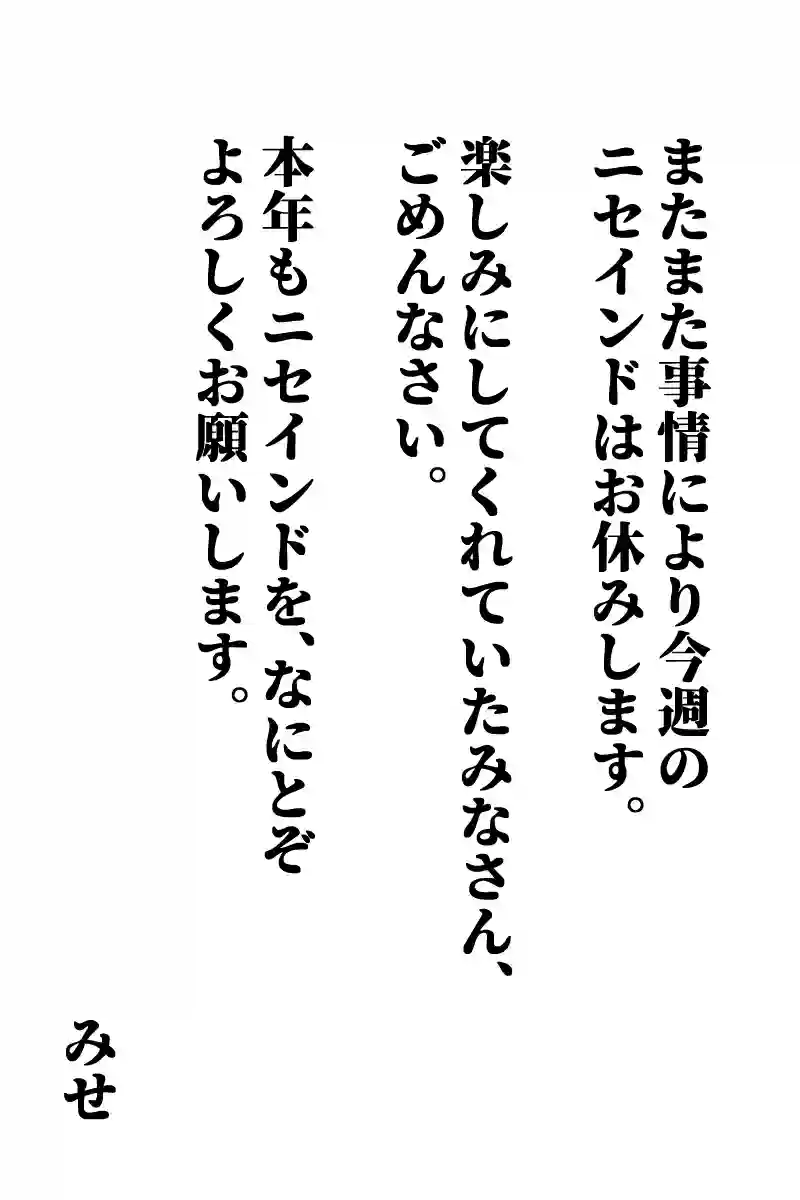 またまた事情により今週の
ニセインドはお休みします。
楽しみにしてくれていたみなさん、
ごめんなさい。
本年もニセインドを、なにとぞ
よろしくお願いします。
みせ